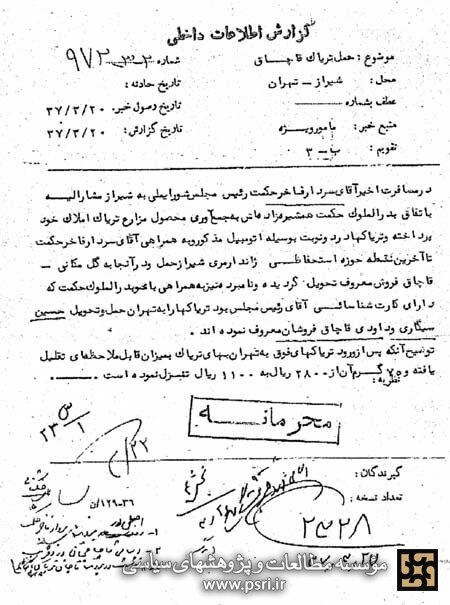 گزارش اطلاعات داخلی
موضوع : حمل تریاک قاچاق
شماره ۹۷۲-۳-۲
محل : شیراز - تهران
تاریخ حادثه :
عطف بشماره
تاریخ وصول خبر. ۳۷/۳/۲۰
منبع خبر : مامور ویژه
تاریخ گزارش : ۳۷/۳/۲۰
تقویم : ب - ۳
در مسافرت اخیر آقای سردار فاخر حکمت رئیس مجلس شورایملی به شیراز مشارالیه
باتفاق بدرالملوک حکمت همشیره زاده اش به جمع آوری محصول مزارع تریاک املاک خود
پرداخته و تریاکها در دو نوبت بوسیله اتومبیل مذکور و به همراهی آقای سردار فاخر حکمت
تا آخرین نقطه حوزه استحفاظی ژاندارمری شیراز حمل و در آنجا به گل مکانی -
قاچاق فروش معروف تحویل گردیده و نامبرده نیز به همراهی بانو بدرالملوک حکمت که
دارای کارت شناسائی آقای رئیس مجلس بود تریاکها را به تهران حمل و تحویل حسین
سیگاری و داودی قاچاق فروشان معروف نموده اند .
توضیح آنکه پس از ورود تریاکهای فوق به تهران بهای تریاک بمیزان قابل ملاحظه ای تقلیل
یافته و ۷۵ گرم آن از ۲۸۰۰ ریال به ۱۱۰۰ ریال تنزل نموده است .
نظریه :
محرمانه
گیرندگان :
تعداد نسخه :
۲۳۲۸
مؤسسه مطالعات و پژوهشهای سیاسی
www.psri.ir